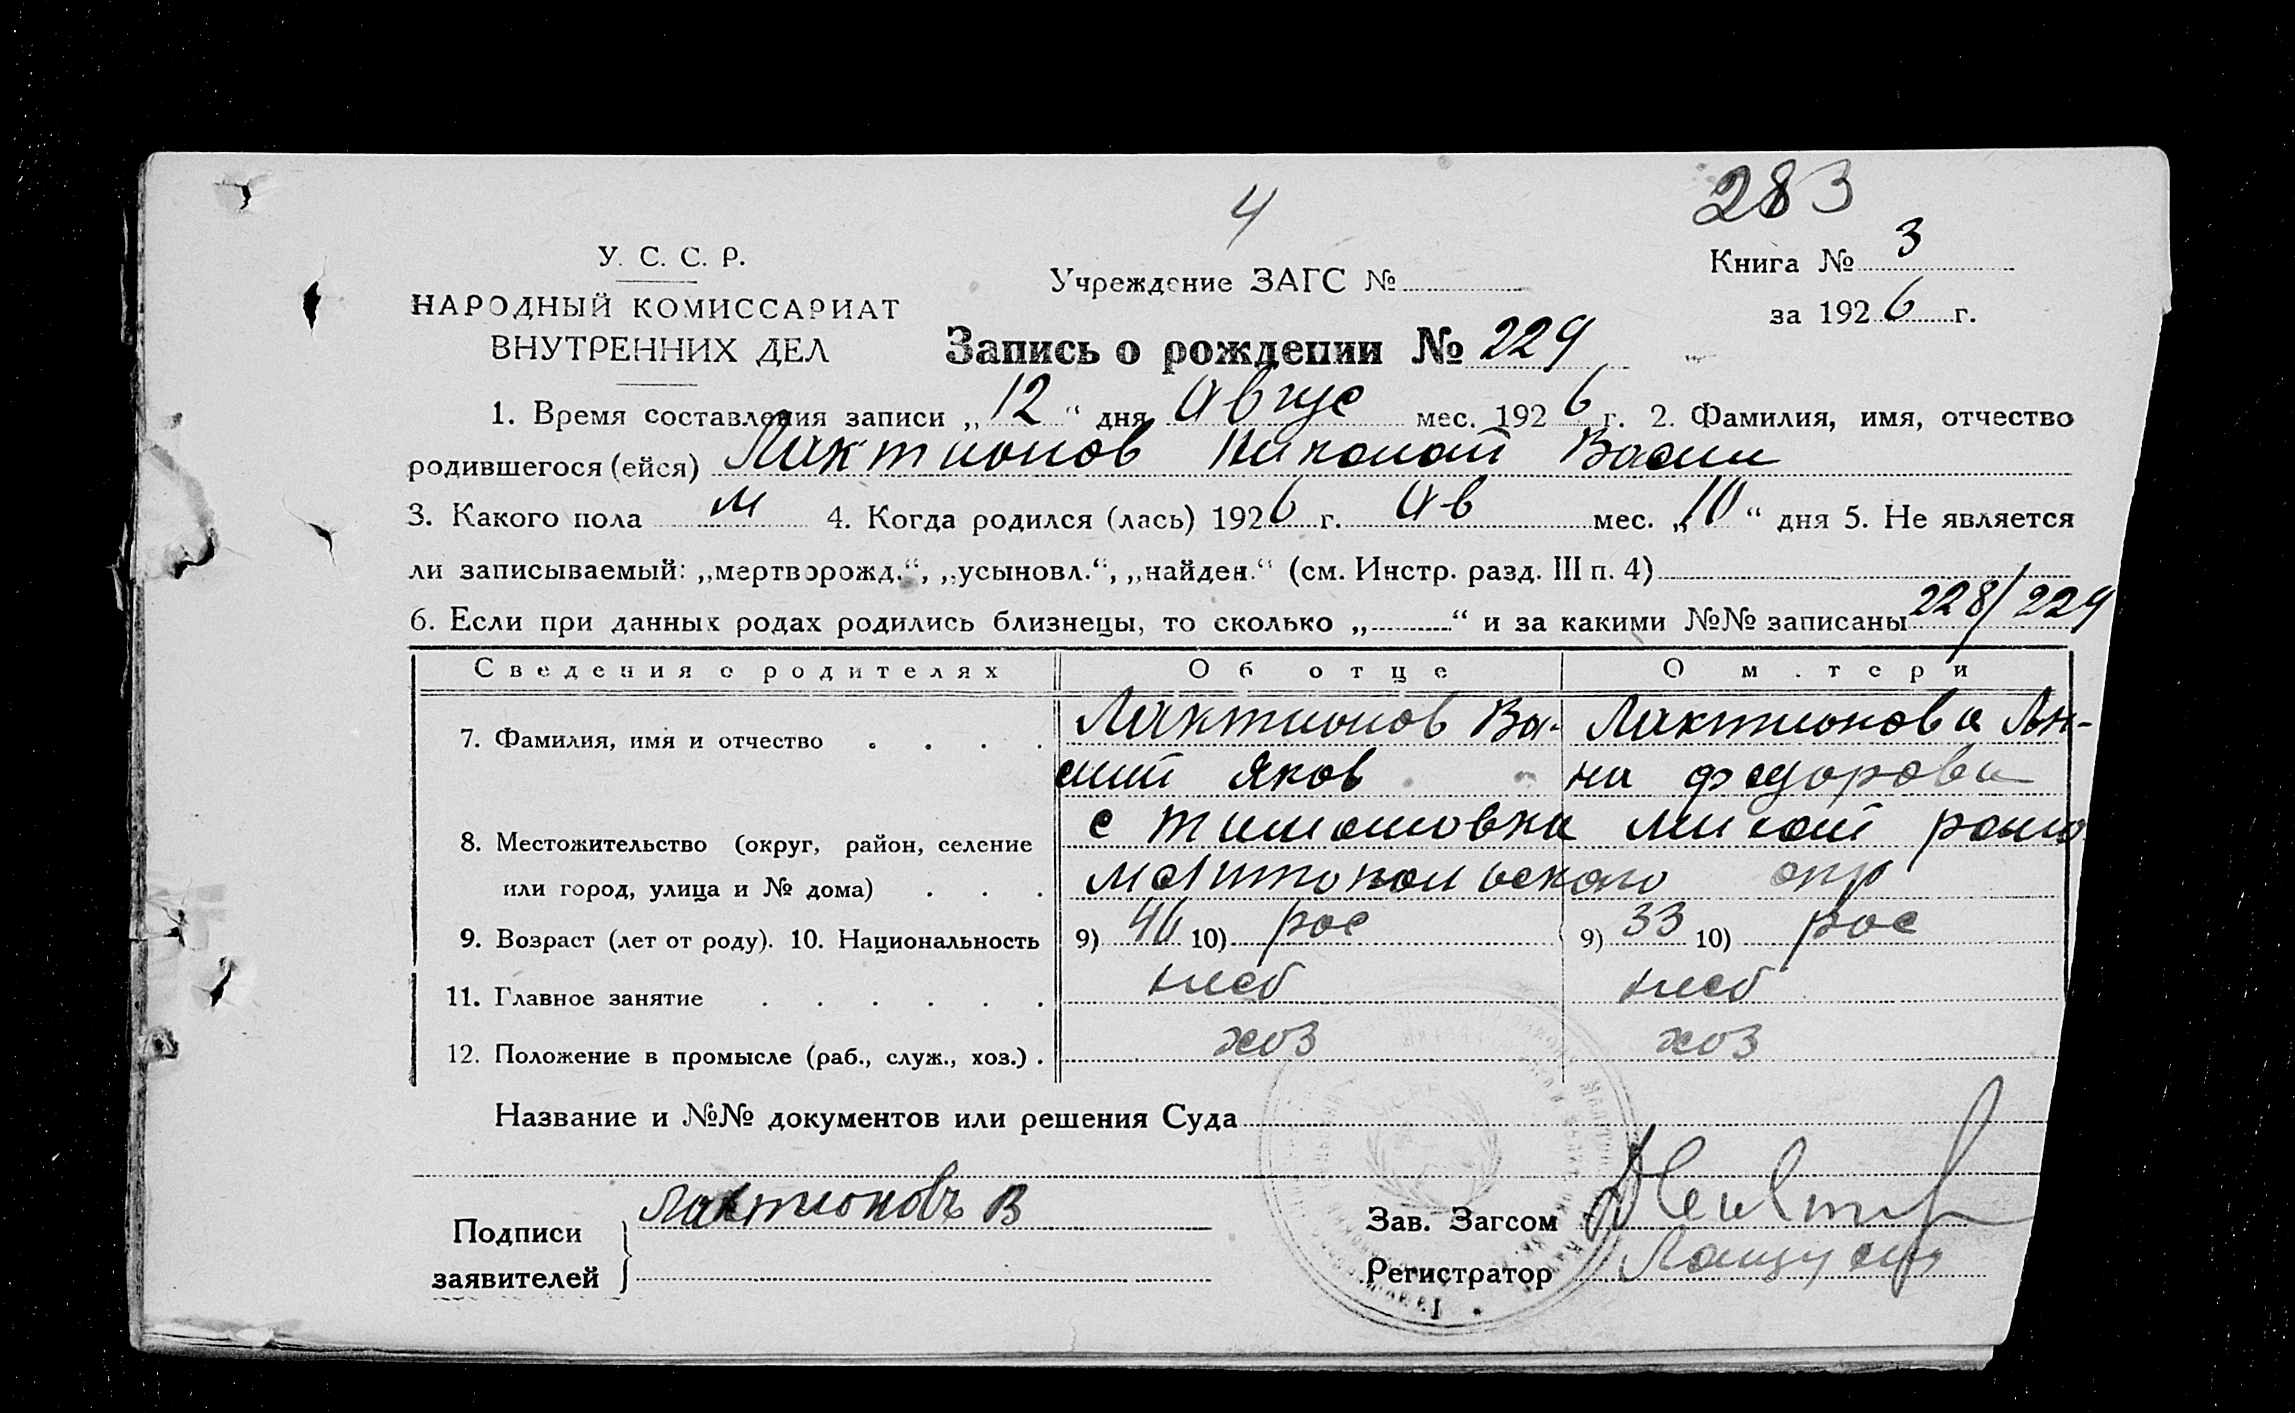 283
4
У. С. С. Р.
Учреждение ЗАГС №
Книга № 3
НАРОДНЫЙ КОМИССАРИАТ
за 1926 г.
ВНУТРЕННИХ ДЕЛ
Запись о рождении № 229
1. Время составления записи „12“ дня Авгус мес. 1926 г. 2. Фамилия, имя, отчество
родившегося (ейся) Лактионов Николай Васили
3. Какого пола м 4. Когда родился (лась) 1926 г. Ав мес. „10“ дня 5. Не является
ли записываемый: „мертворожд.“, „усыновл.“, „найден.“ (см. Инстр. разд. III п. 4)
6. Если при данных родах родились близнецы, то сколько „ “ и за какими №№ записаны 228/229
Сведения о родителях Об отце О м.тери
7. Фамилия, имя и отчество . . . . Лактионов Ва- Лактионова Ан-
силий Яков на Федорова
с Тимошовка
8. Местожительство (округ, район, селение
или город, улица и № дома) . . . Мелитопольского окр
9. Возраст (лет от роду). 10. Национальность 9) 46 10) рос 9) 33 10) рос
11. Главное занятие . . . . . . хлеб хлеб
12. Положение в промысле (раб., служ., хоз.) . хоз хоз
Название и №№ документов или решения Суда
Лактионовъ В
Подписи
заявителей
Зав. Загсом
Регистратор